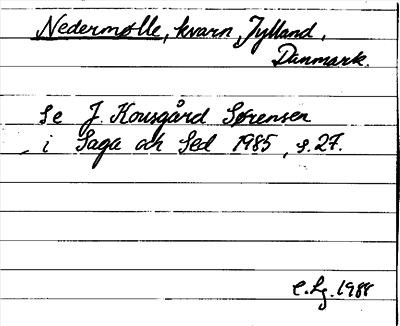 Nedermølle, kvarn, Jylland,
Danmark.
Se J. Kousgård Sørensen
i Saga och Sed 1985, s. 27.
E. Lg. 1988